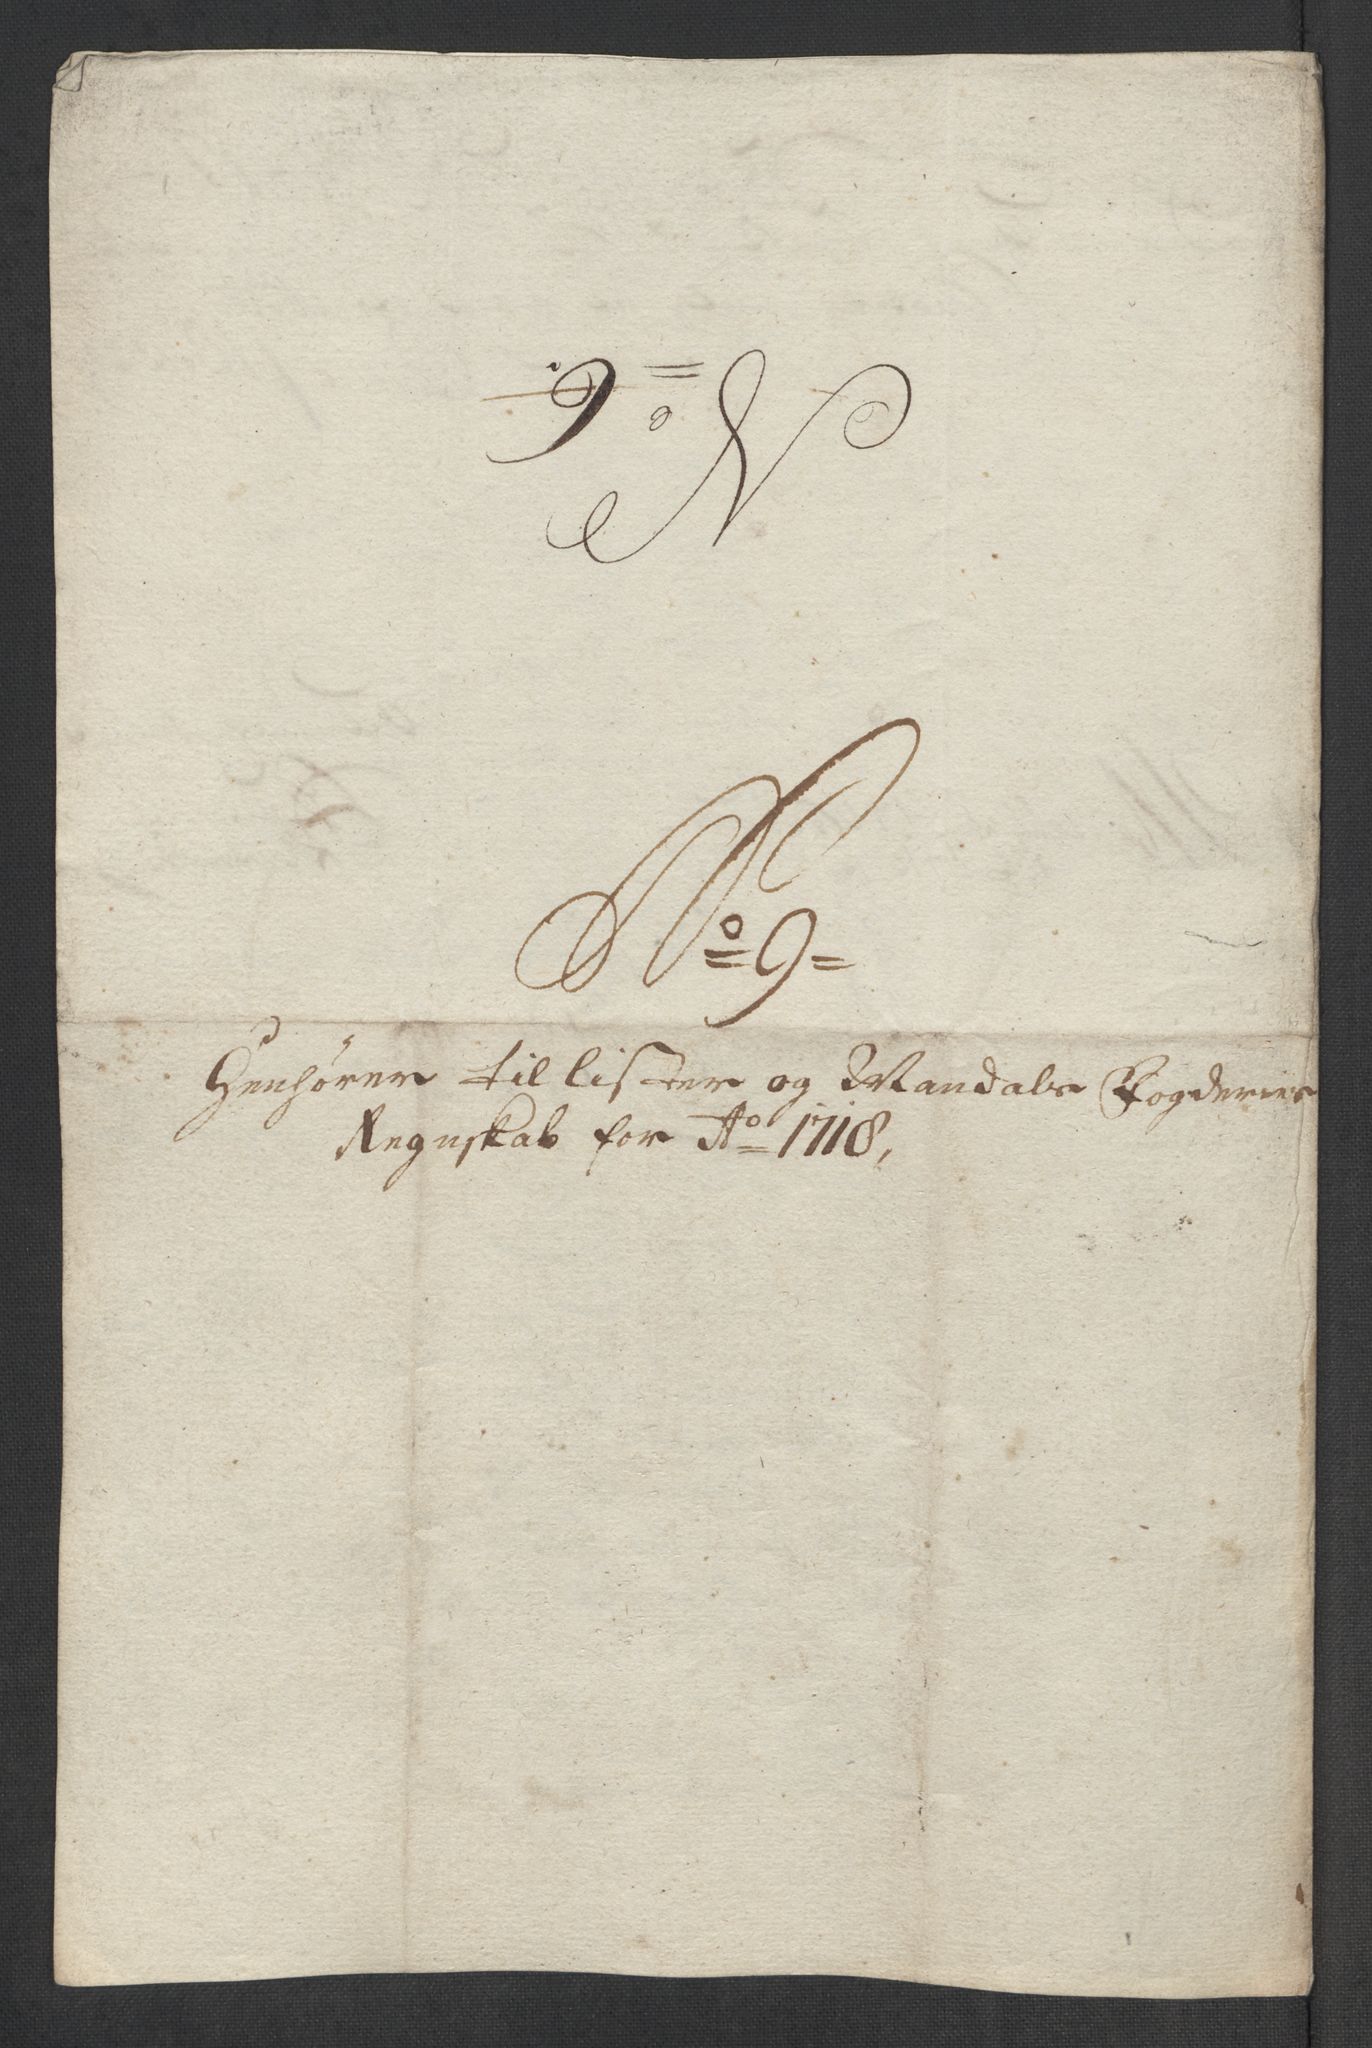 No 9
No 9
Henhörer til Lister og Mandals Fogderies
Regnskab for Ao 1718,